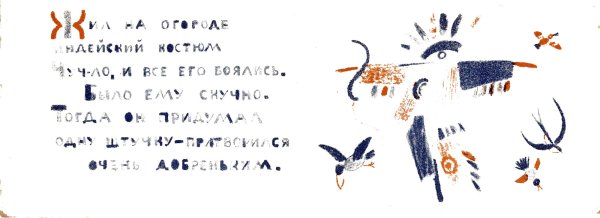 Жил на огороде
индейский костюм
Чучло, и все его боялись.
Было ему скучно.
Тогда он придумал
одну штучку-притворился
очень добреньким.